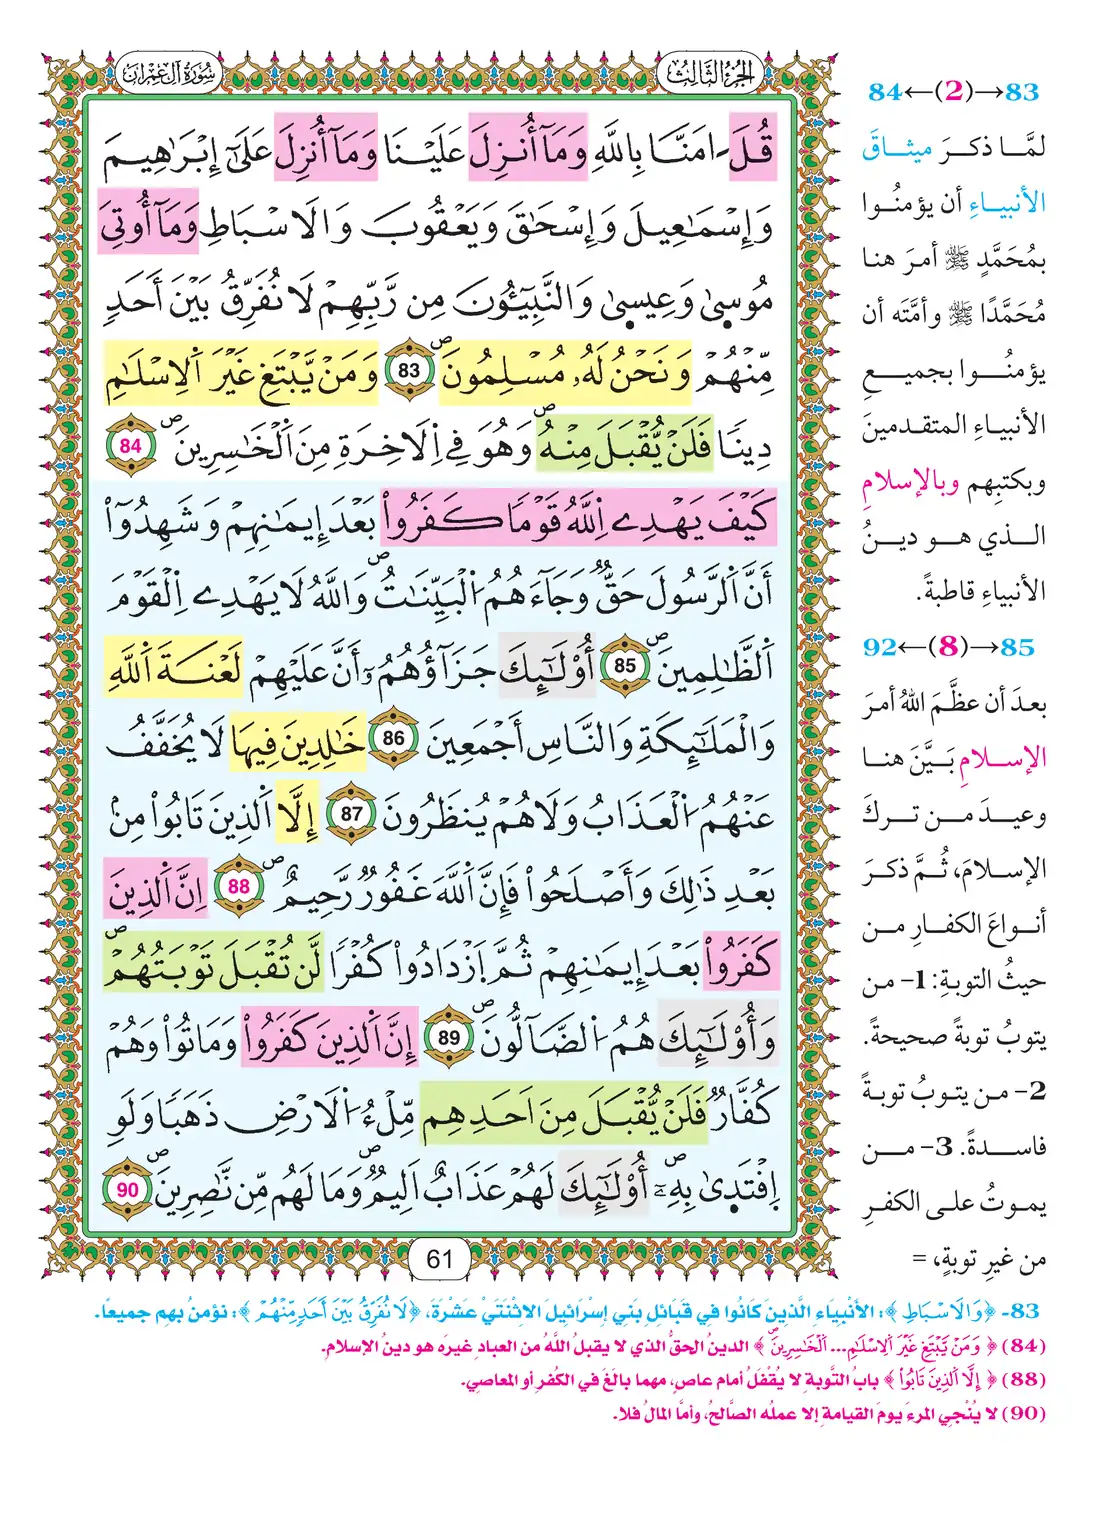 الجزء الثالث
سورة آل عمران
قُلَ اٰمَنَّا بِاللَّهِ وَمَآ أُنزِلَ عَلَيْنَا وَمَآ أُنزِلَ عَلَىٰٓ إِبْرَٰهِيمَ
وَإِسْمَٰعِيلَ وَإِسْحَٰقَ وَيَعْقُوبَ وَالَاسْبَاطِ وَمَآ أُوتِىَ
مُوسىٰ وَعِيسىٰ وَالنَّبِيٓـُٔونَ مِن رَّبِّهِمْ لَا نُفَرِّقُ بَيْنَ أَحَدٍ
مِّنْهُمْ وَنَحْنُ لَهُۥ مُسْلِمُونَۖ 83 وَمَنْ يَّبْتَغِ غَيْرَ اَ۬لِاسْلَٰمِ
دِينٗا فَلَنْ يُّقْبَلَ مِنْهُۖ وَهُوَ فِے اِ۬لَاخِرَةِ مِنَ اَ۬لْخَٰسِرِينَۖ 84
كَيْفَ يَهْدِے اِ۬للَّهُ قَوْمٗا كَفَرُواْ بَعْدَ إِيمَٰنِهِمْ وَشَهِدُوٓاْ
أَنَّ اَ۬لرَّسُولَ حَقّٞ وَجَآءَهُمُ اُ۬لْبَيِّنَٰتُۖ وَاللَّهُ لَا يَهْدِے اِ۬لْقَوْمَ
اَ۬لظَّٰلِمِينَۖ 85 أُوْلَٰٓئِكَ جَزَآؤُهُمُۥٓ أَنَّ عَلَيْهِمْ لَعْنَةَ اَ۬للَّهِ
وَالْمَلَٰٓئِكَةِ وَالنَّاسِ أَجْمَعِينَ 86 خَٰلِدِينَ فِيهَا لَا يُخَفَّفُ
عَنْهُمُ اُ۬لْعَذَابُ وَلَا هُمْ يُنظَرُونَ 87 إِلَّا اَ۬لذِينَ تَابُواْ مِنۢ
بَعْدِ ذَٰلِكَ وَأَصْلَحُواْ فَإِنَّ اَ۬للَّهَ غَفُورٞ رَّحِيمٌۖ 88 اِنَّ اَ۬لذِينَ
كَفَرُواْ بَعْدَ إِيمَٰنِهِمْ ثُمَّ اَ۪زْدَادُواْ كُفْرٗا لَّن تُقْبَلَ تَوْبَتُهُمْۖ
وَأُوْلَٰٓئِكَ هُمُ اُ۬لضَّآلُّونَۖ 89 إِنَّ اَ۬لذِينَ كَفَرُواْ وَمَاتُواْ وَهُمْ
كُفَّارٞ فَلَنْ يُّقْبَلَ مِنَ اَحَدِهِم مِّلْءُ اُ۬لَارْضِ ذَهَبٗا وَلَوِ
اِ۪فْتَدىٰ بِهِۦٓۖ أُوْلَٰٓئِكَ لَهُمْ عَذَابٌ اَلِيمٞۖ وَمَا لَهُم مِّن نَّٰصِرِينَۖ 90
61
83→(2)←84
لمَّا ذكرَ ميثاقَ
الأنبياءِ أن يؤمنُوا
بمُحَمَّدٍ ﷺ أمرَ هنا
مُحَمَّدًا ﷺ وأمَّتَه أن
يؤمنُوا بجميعِ
الأنبياءِ المتقدمينَ
وبكتبِهم وبالإسلامِ
الذي هو دينُ
الأنبياءِ قاطبةً.
85→(8)←92
بعدَ أن عظَّمَ اللهُ أمرَ
الإسلامِ بَيَّنَ هنا
وعيدَ من تركَ
الإسلامَ، ثُمَّ ذكرَ
أنواعَ الكفارِ من
حيثُ التوبةِ: 1- من
يتوبُ توبةً صحيحةً.
2- من يتوبُ توبةً
فاسدةً. 3- من
يموتُ على الكفرِ
من غيرِ توبةٍ، =
83- ﴿وَالَاسْبَاطِ﴾: الأَنْبِيَاءِ الَّذِينَ كَانُوا في قَبَائِلِ بَنِي إسْرَائِيلَ الاِثْنَتَيْ عَشْرَةَ، ﴿لَا نُفَرِّقُ بَيْنَ أَحَدٍ مِّنْهُمْ﴾: نؤمنُ بهم جميعًا.
(84) ﴿وَمَنْ يَّبْتَغِ غَيْرَ اَ۬لِاسْلَٰمِ... اَ۬لْخَٰسِرِينَۖ﴾ الدينُ الحقُّ الذي لا يقبلُ اللَّهُ من العبادِ غيرَه هو دينُ الإسلامِ.
(88) ﴿إِلَّا اَ۬لذِينَ تَابُواْ﴾ بابُ التَّوبةِ لا يُقْفَلُ أمام عاصٍ، مهما بالَغَ في الكُفرِ أو المعاصِي.
(90) لا يُنْجِي المرءَ يومَ القيامةِ إلا عملُه الصَّالحُ، وأمَّا المالُ فلا.